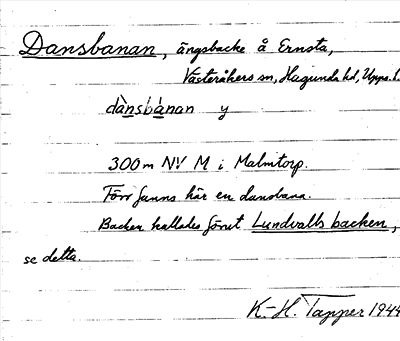 Dansbanan, ängsbacke å Ernsta,
Västeråkers sn, Hagunda hd, Upps. l.
dànsbànan y
300 m NV M i Malmtorp.
Förr fanns här en dansbana.
Backen kallades förut Lundvalls backen,
se detta.
K.-H. Tapper 1944